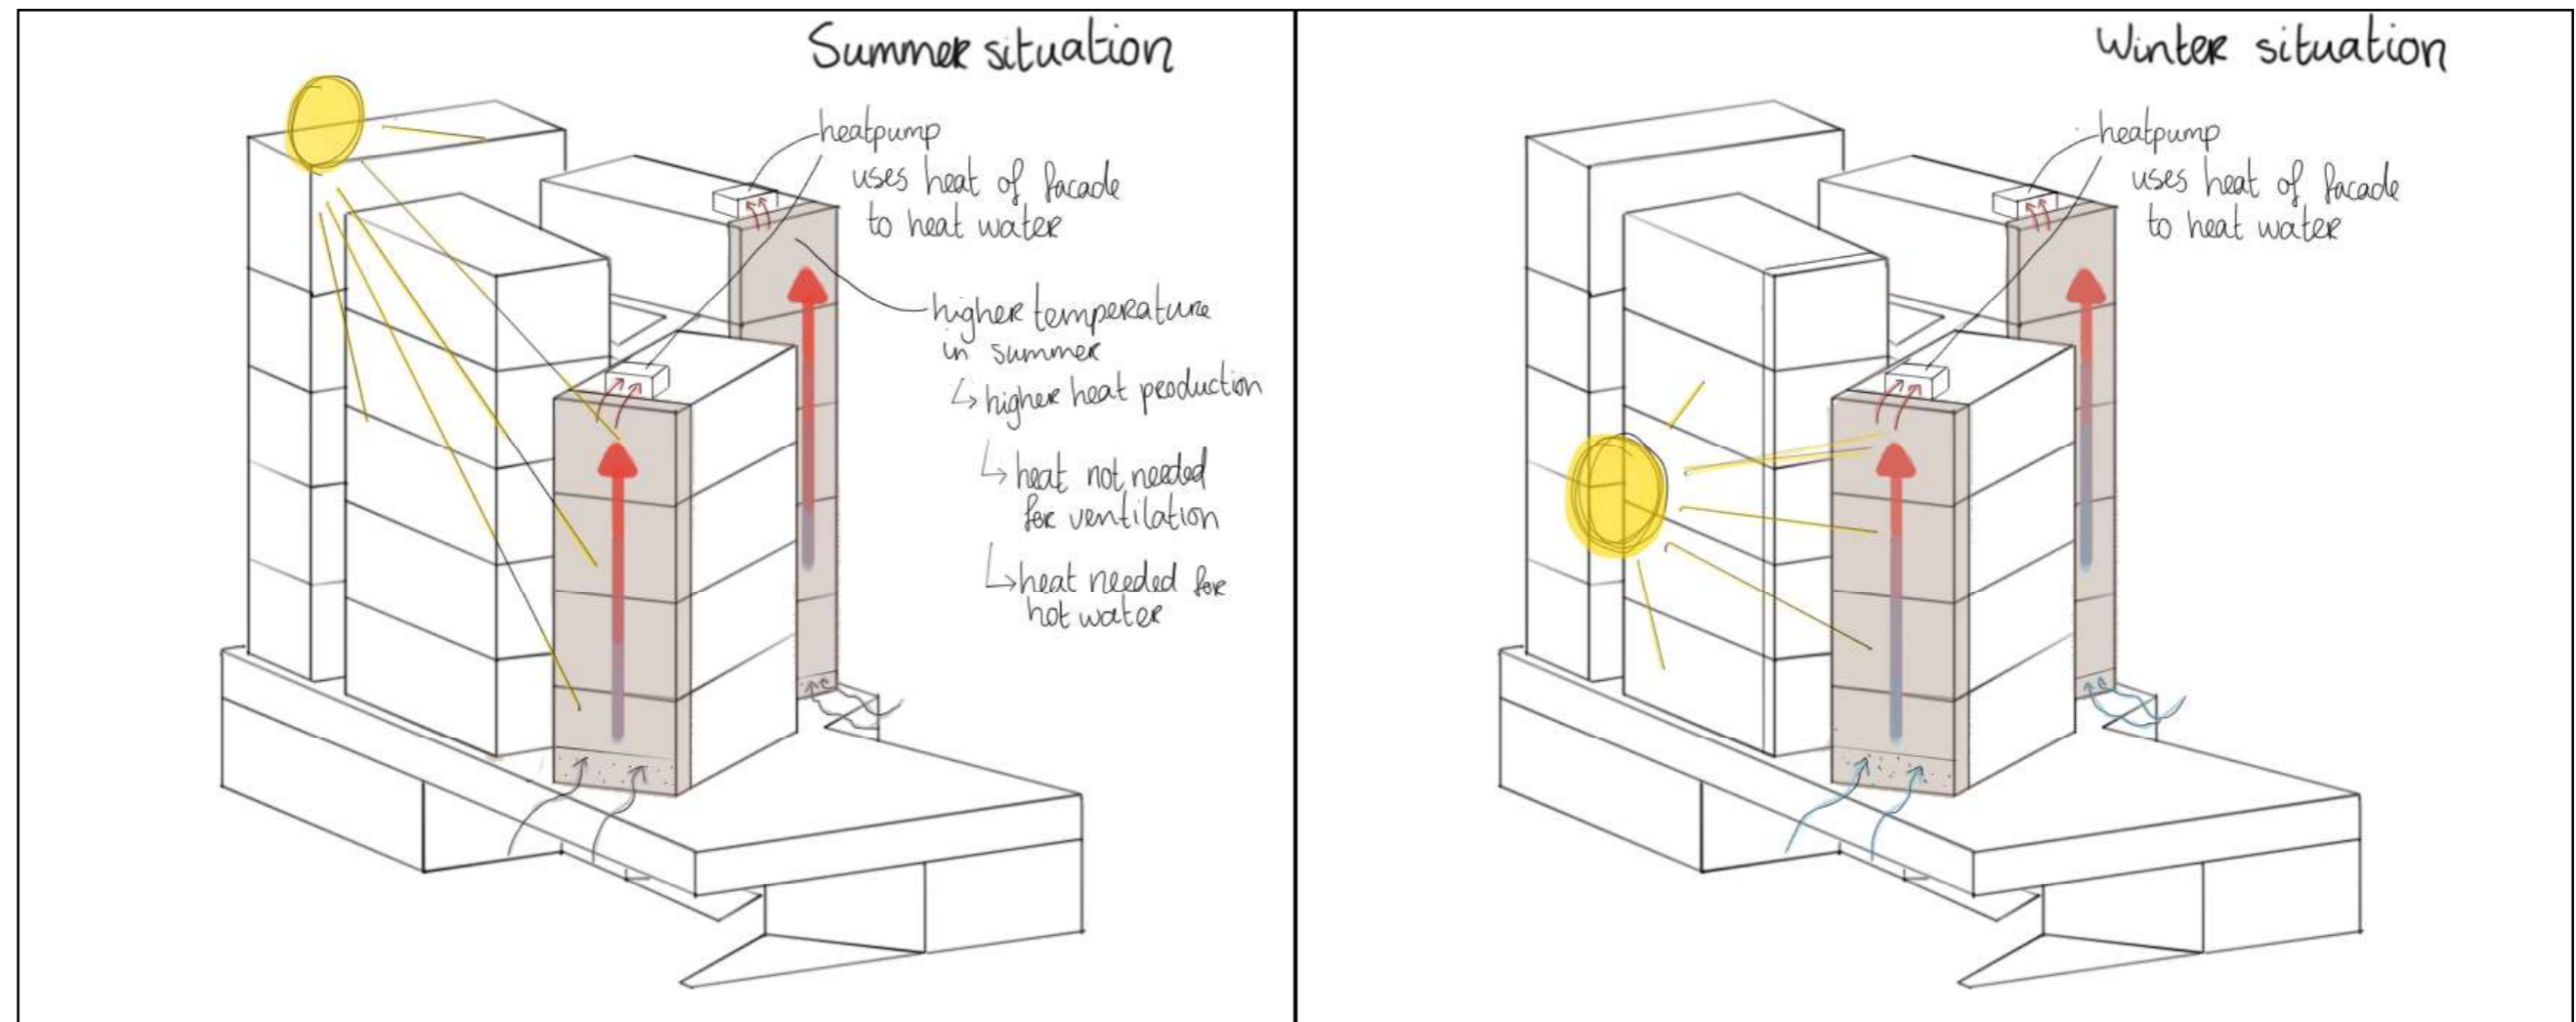 Summer situation
heatpump
uses heat of facade
to heat water
higher temperature
in summer
↳ higher heat production
↳ heat not needed
for ventilation
↳ heat needed for
hot water
Winter situation
heatpump
uses heat of facade
to heat water